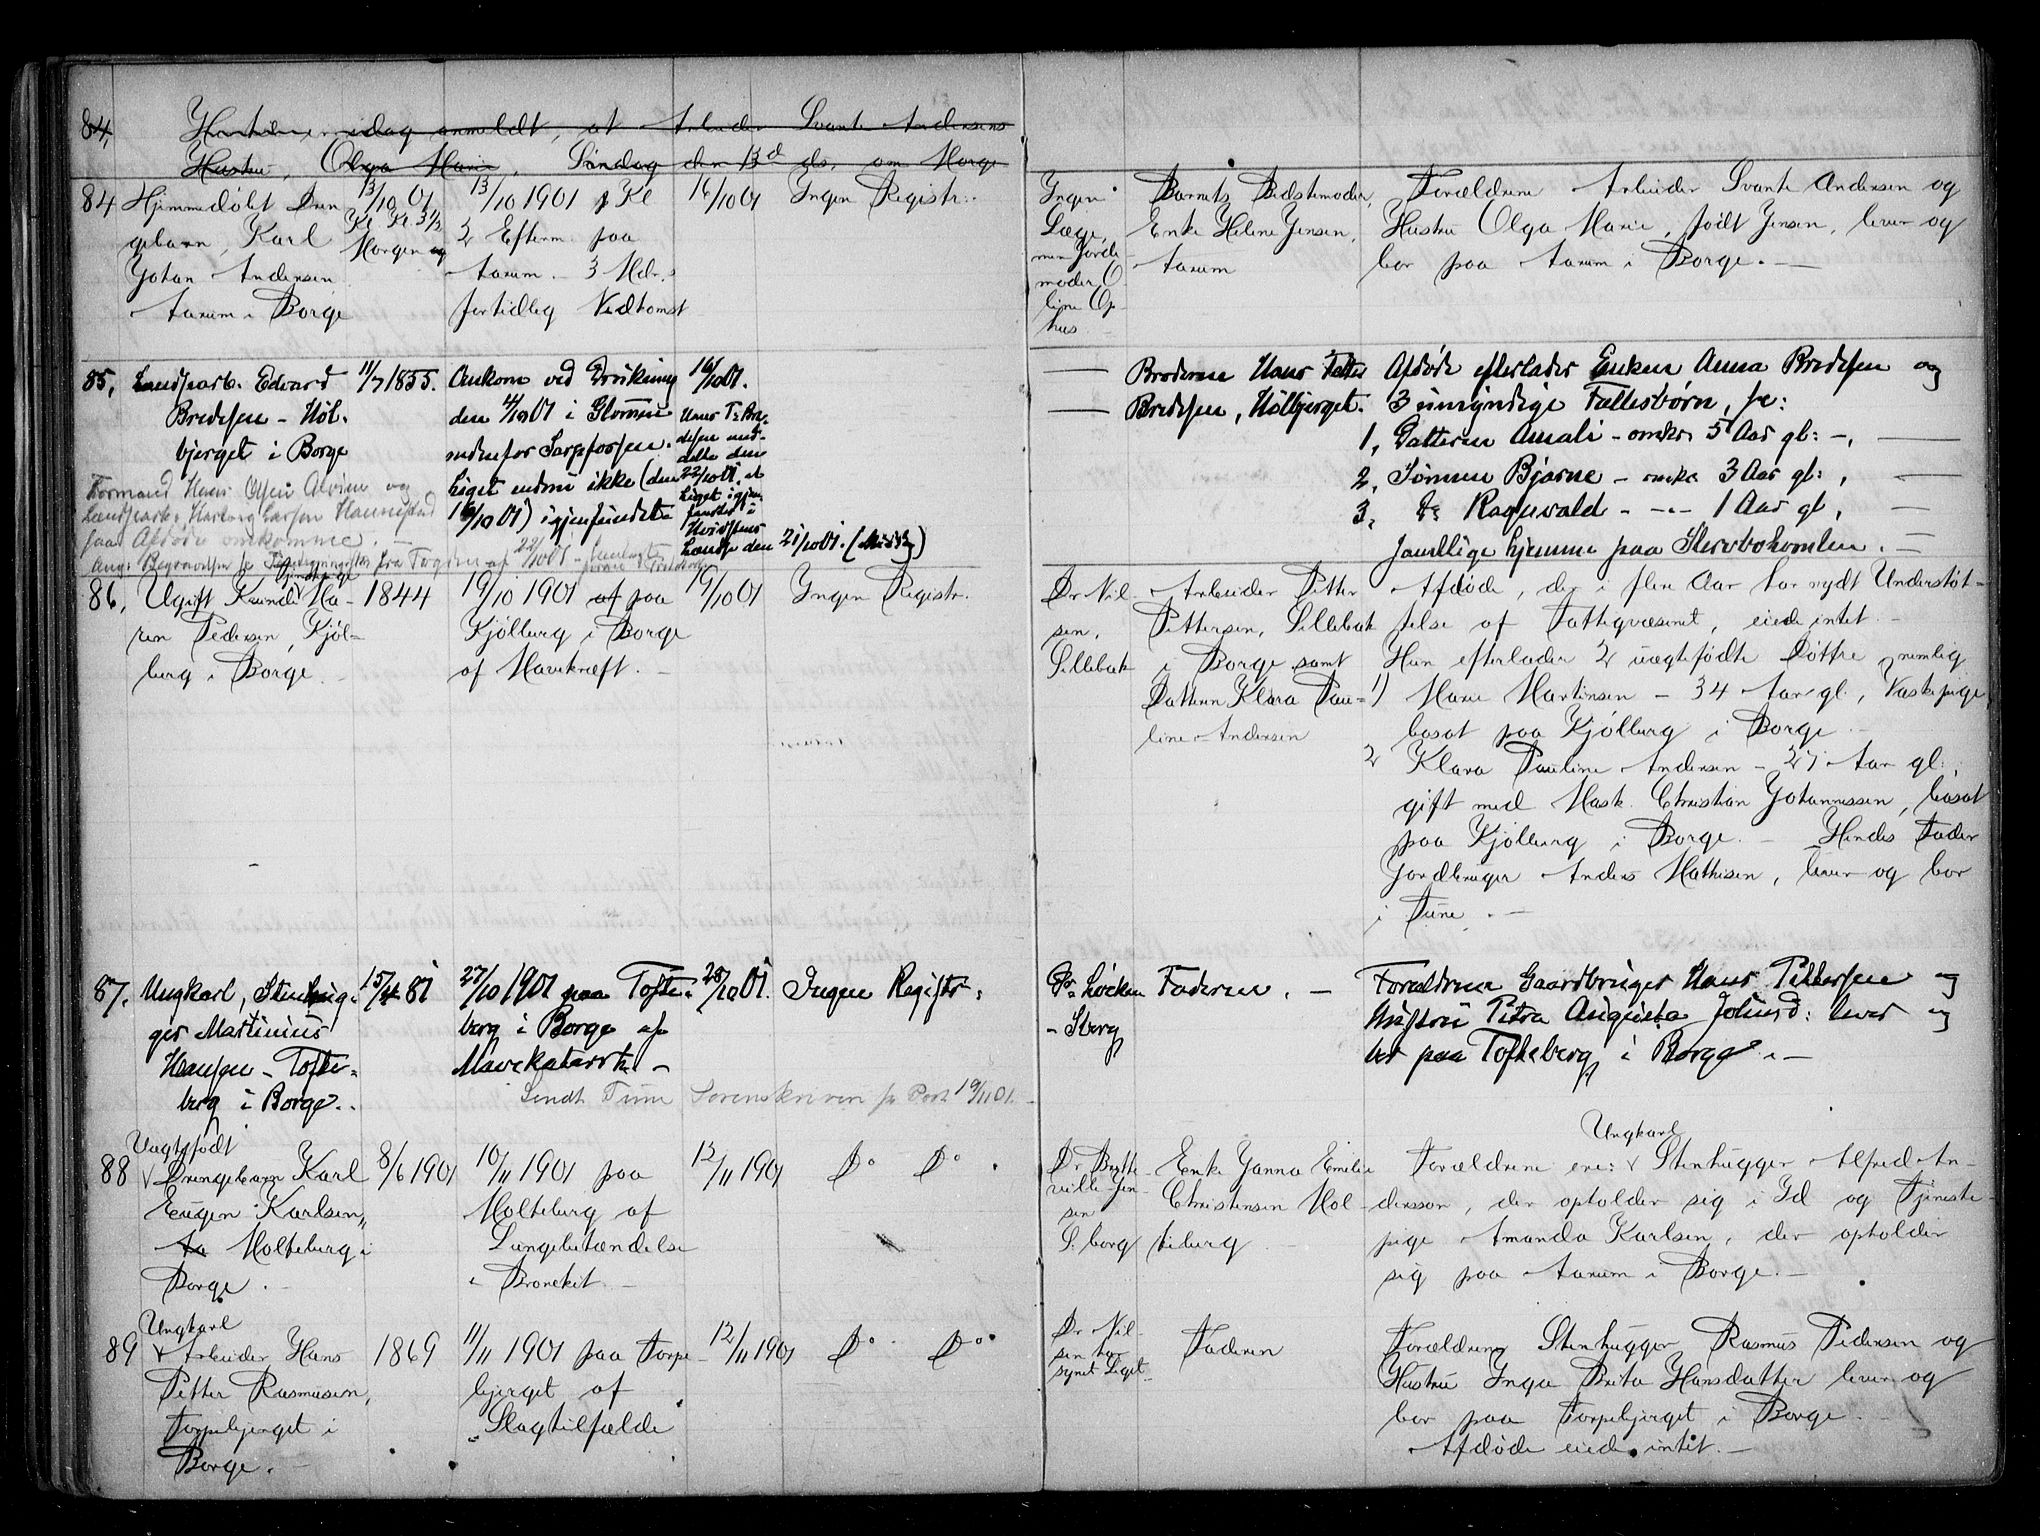 84,
Hertil er idag anmeldt, at Arbeider Svante Andersens
Hustru, Olga Marie, Søndag den 13d ds. om Morge
84 Hjemmedøbt Dren
gebarn, Karl
Johan Andersen
Aarum i Borge
13/10 01
Kl. 3 1/2
Morgen og
13/10 1901 Kl
2 Efterm. paa
Aarum. 3 Mdr.s
fortidlig Nedkomst
16/10 01
Ingen Registr.
Ingen
Læge,
men Jorde
moder O
line Op
hus
Barnets Bedstemoder,
Enke Helene Jensen,
Aarum
Forældrene Arbeider Svante Andersen og
Hustru Olga Marie, født Jensen, lever og
bor paa Aarum i Borge. —
85, Landharb. Edvard
Bredesen - Høl-
bjerget i Borge
Formand Hans Olsen Alvim og
Landharb. Hartvig Larsen Hannestad
saa Afdøde omkomme. —
11/7 1855.
Omkom ved Drukning
den 4/10 01 i Glommen
nedenfor Sarpfossen.
Liget endnu ikke (den
16/10 01) igjenfundet
16/10 01.
Hans P. Bre-
desen med-
delte den
22/10 01, at
Liget igjen
fundet i
Hvidstens
Landse den 21/10 01.
Broderen Hans Petter
Bredesen, Hølbjerget.
Afdøde efterlader Enken Anna Bredesen og
3 umyndige Fællesbørn, se:
1, Datteren Amali - omkr. 5 Aar gl: -,
2, Sønnen Bjarne - omkr. 3 Aar gl:,
3, Do Ragnvald - -"- 1 Aar gl,
samtlige hjemme paa Stervboholmen.
86, Ugift Kvinde Ma-
ren Pedersen, Kjøl-
berg i Borge. —
1844
19/10 1901 af paa
Kjølberg i Borge
af Mavekræft. —
19/10 01
Ingen Registr.
Dr Nil-
sen,
Sillebak
Arbeider Petter
Pettersen, Sillebak
i Borge samt
Datteren Klara Pau-
line Andersen
Afdøde, der i flere Aar har nydt Understøt-
telse af Fattigvæsenet, eiede intet. —
Hun efterlader 2 uægtefødte Døttre, nemlig
1) Marie Martinsen - 34 Aar gl., Vaskepige
bosat paa Kjølberg i Borge. —
2 Klara Pauline Andersen - 27 Aar gl:,
gift med Mask. Christian Johannessen, bosat
paa Kjølberg i Borge. — Hendes Fader
Jordbruger Anders Mathisen, lever og bor
i Tune. —
87. Ungkarl, Stenhug-
ger Martinius
Hansen - Tofte-
berg i Borge.
15/4 81
27/10 1901 paa Tofte-
berg i Borge af
Mavekatarrh. —
28/10 01.
Ingen Registr.
Sendt Tune Sorenskriveri pr Post 19/11 01.
Dr. Løcken
- Sberg
Faderen. —
Forældrene Gaardbruger Hans Pettersen og
Hustru Petra Augusta Johnsd: lever og
bor paa Tofteberg i Borge. —
Uægtefødt
88 Drengebarn Karl
Eugen Karlsen,
Holteberg i
Borge. —
8/6 1901
10/11 1901 paa
Holteberg af
Lungebetændelse
i Bronckit. —
12/11 1901
Do Do
Dr Brette
ville-Jen-
sen
S.borg
Enke Janna Emilie
Christensen Hol-
teberg —
Ungkarl
Forældrene ere: Stenhugger Alfred An-
dersson, der opholder sig i Id og Tjeneste-
pige Amanda Karlsen, der opholder
sig paa Aarum i Borge. —
Ungkarl
89 Arbeider Hans
Petter Rasmusen,
Torpebjerget i
Borge. —
1869
11/11 1901 paa Torpe-
bjerget af
Slagtilfælde
12/11 1901
Do Do
Dr. Nil-
sen har
synet Liget
Faderen
Forældrene Stenhugger Rasmus Pedersen og
Hustru Inga Brita Hansdatter lever og
bor paa Torpebjerget i Borge. —
Afdøde eiede intet. —